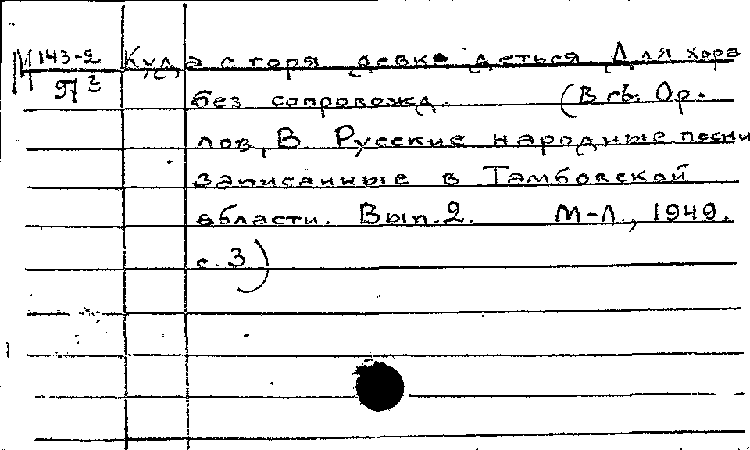 М 143-2 Куда с горя девке деться Для хора
П 3 без сопровожд. (В сб. Ор-
лов, В. Русские народные песни
записанные в Тамбовской
области. Вып. 2. М-Л., 1949.
с. 3)